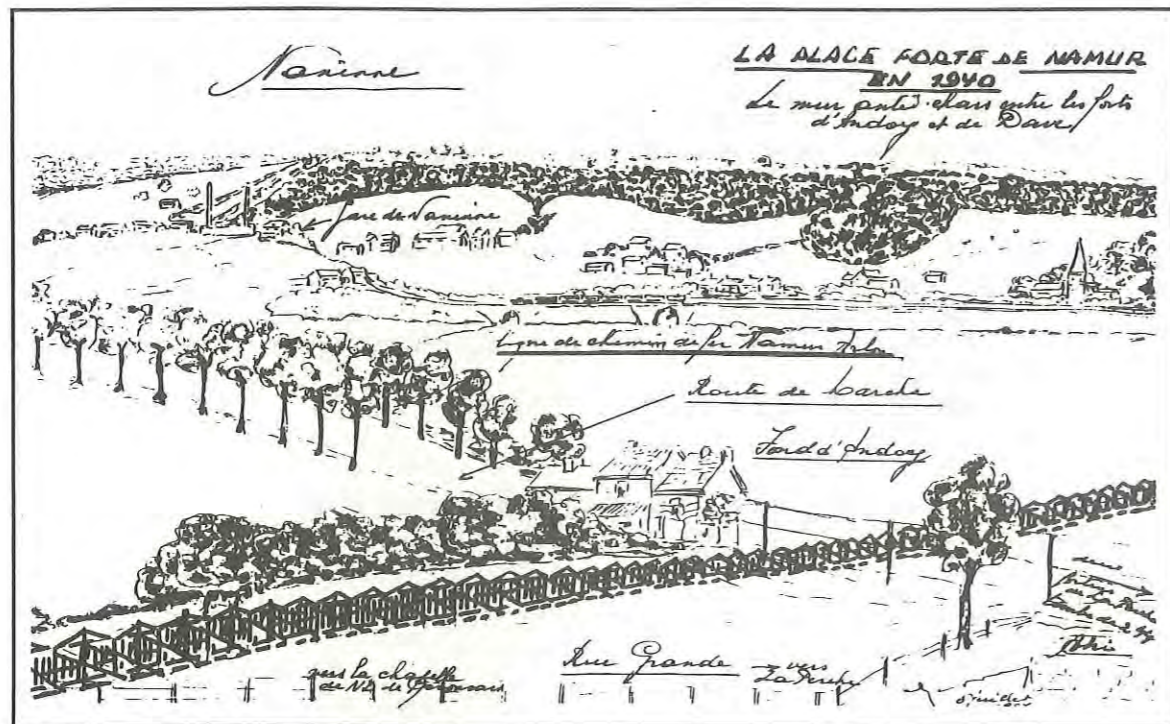 Naninne
LA PLACE FORTE DE NAMUR
EN 1940
Le mur anti-chars entre les forts
d'Andoy et de Dave
gare de Naninne
Ligne de chemin de fer Namur Arlon
Route de Marche
Fond d'Andoy
vers la chapelle
de ND de
Rue Grande
vers
La Perche
Abri